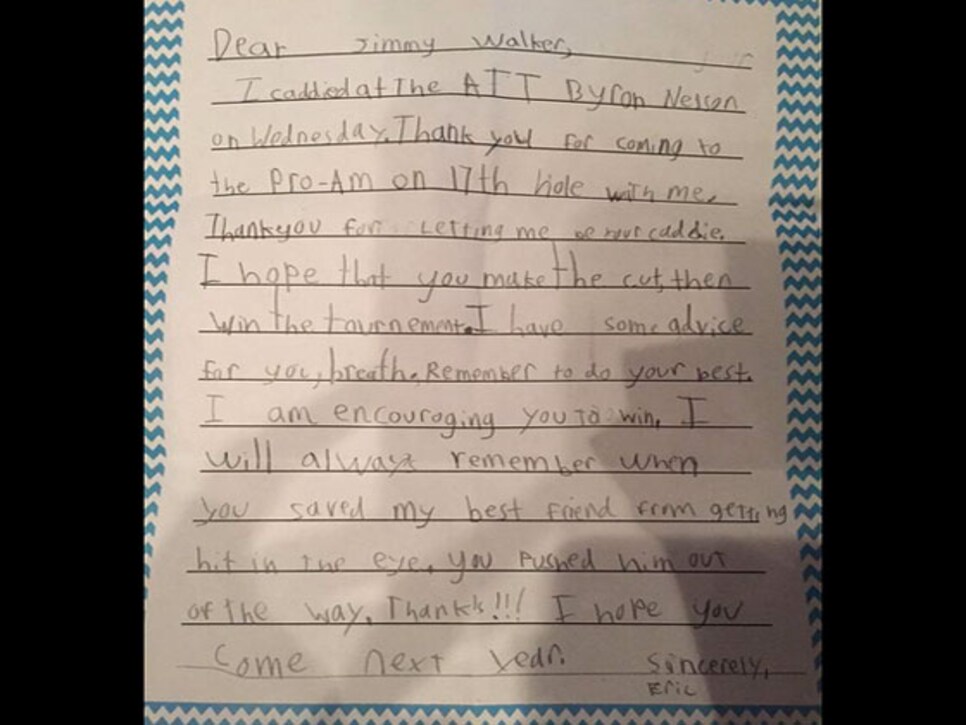 Dear Jimmy Walker,
I caddied at The ATT Byron Nelson
on Wednesday. Thank you for coming to
the Pro-Am on 17th hole with me.
Thankyou for Letting me be your caddie.
I hope that you make the cut, then
win the tournement. I have some advice
for you, breath. Remember to do your best.
I am encouraging you to win. I
will always remember when
you saved my best friend from getting
hit in the eye. You pushed him out
of the way. Thankk!!! I hope you
come next year. Sincerely,
Eric